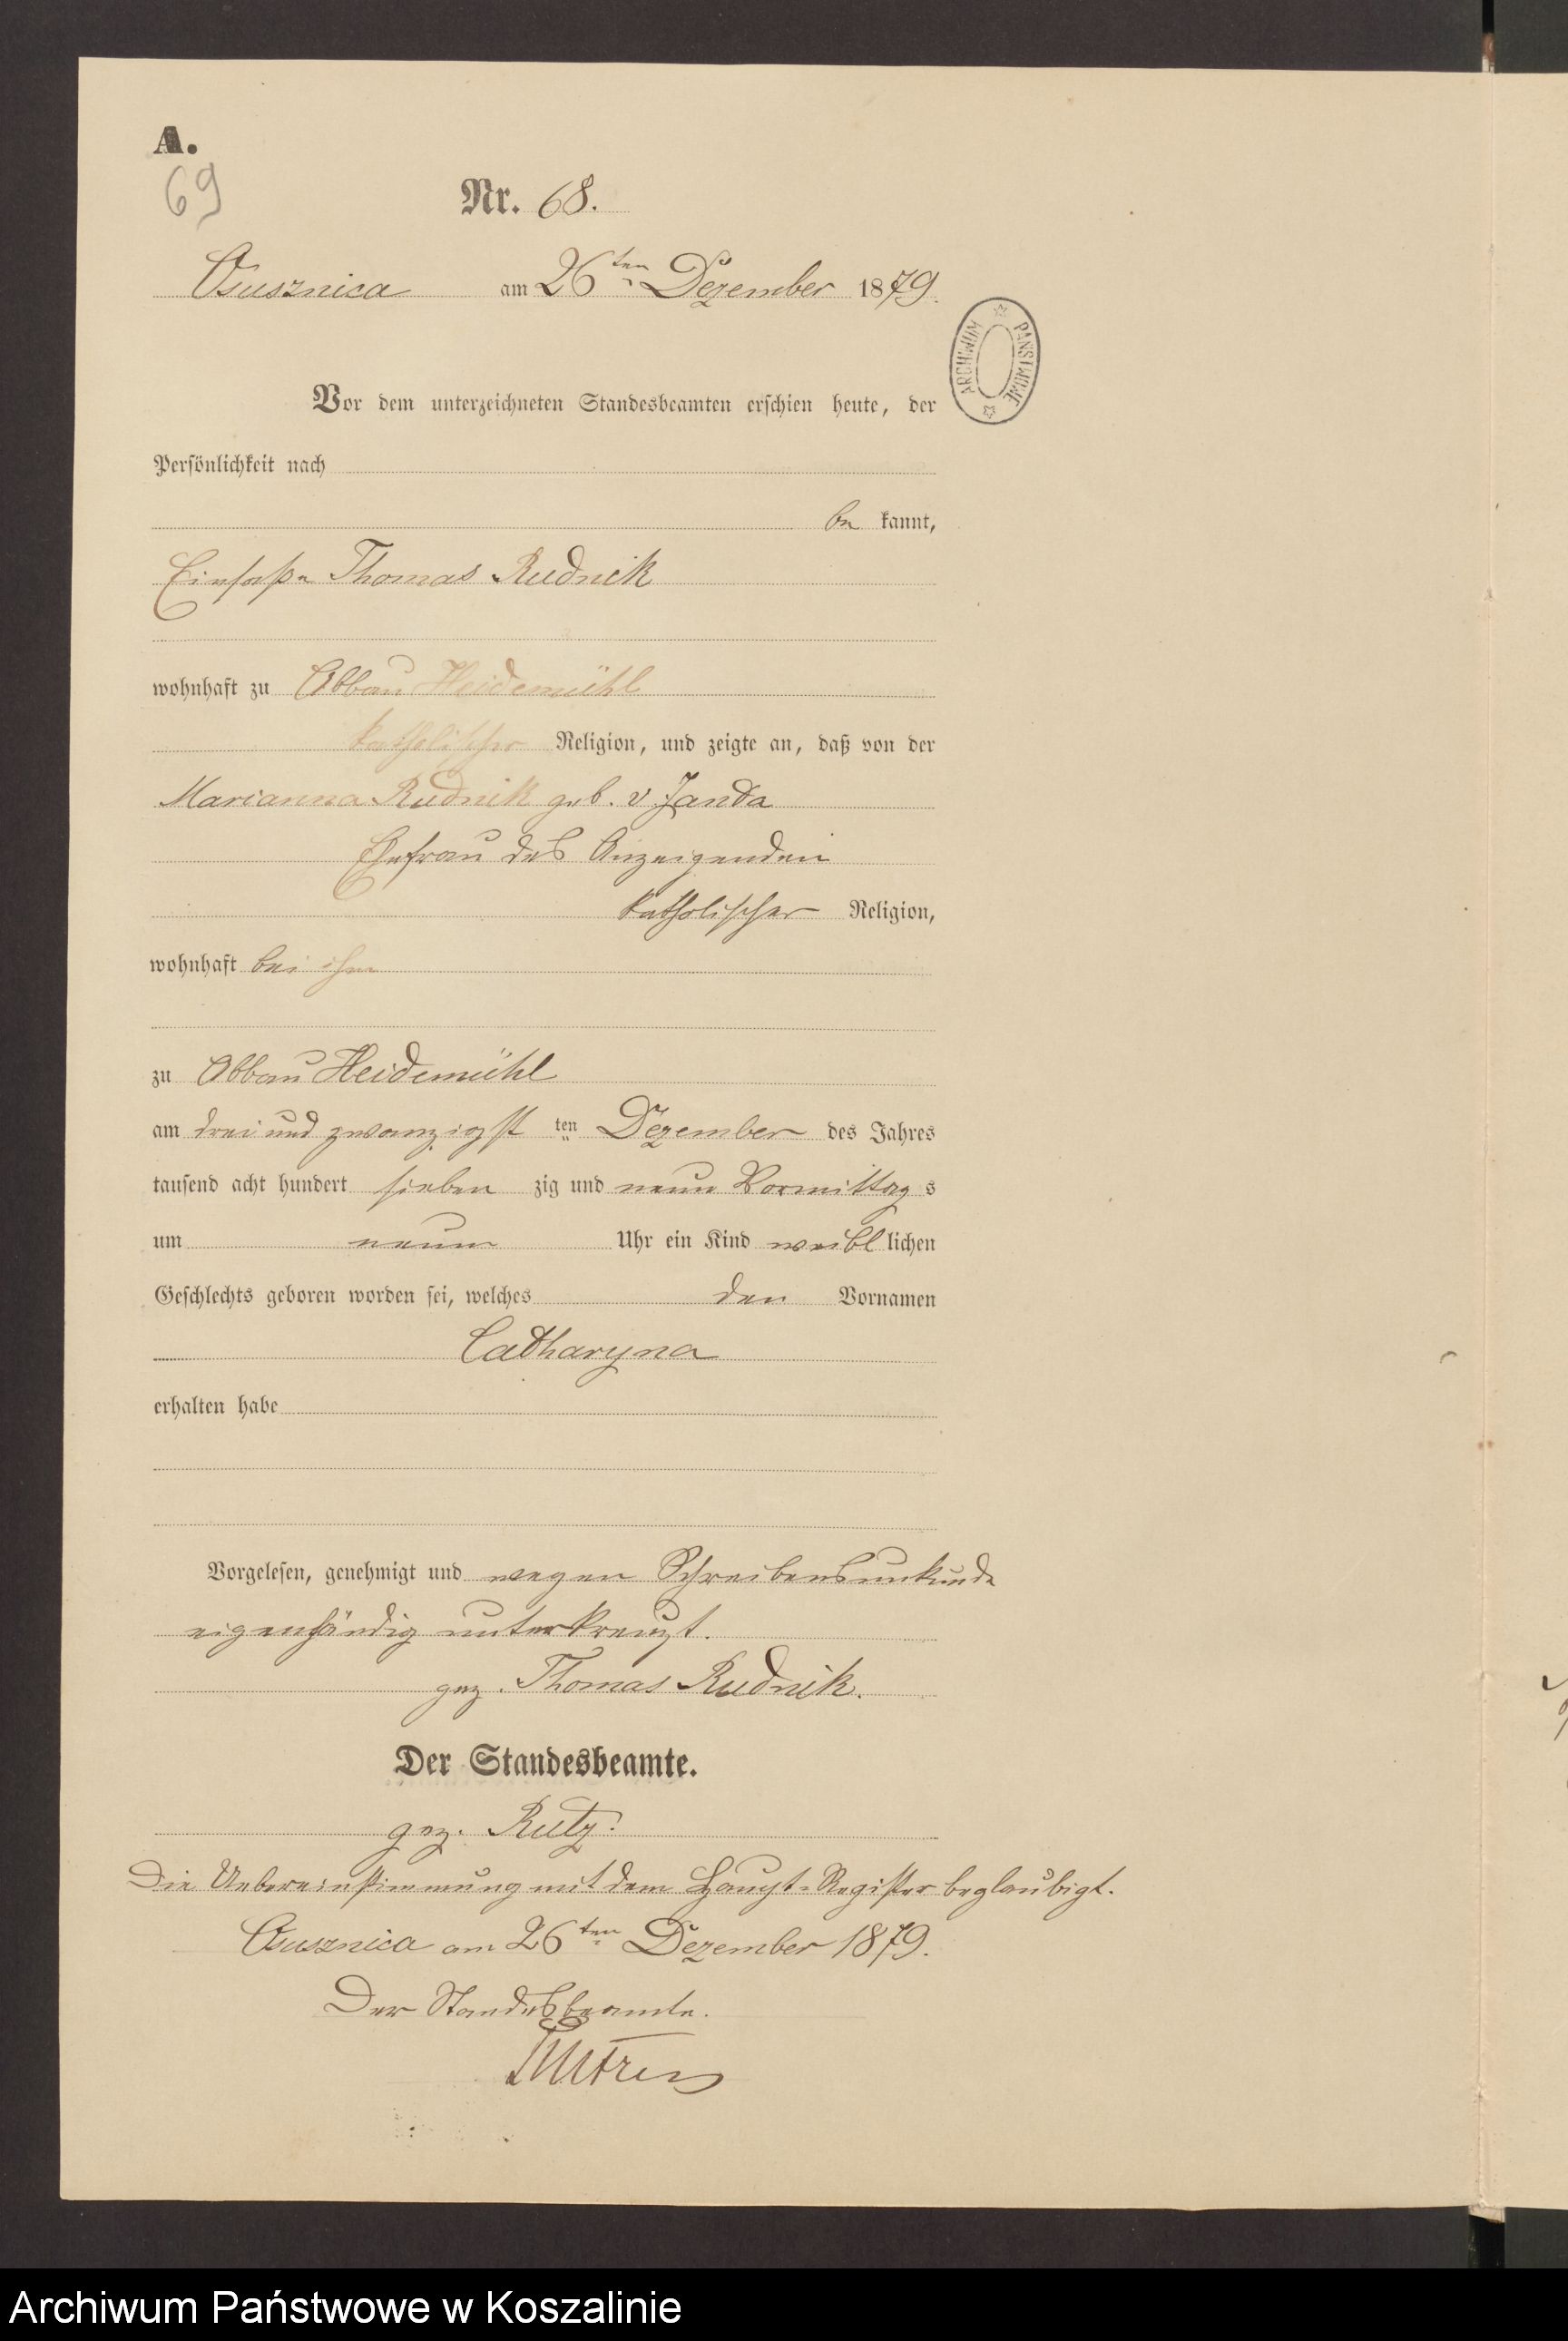 A.
69
Nr. 68.
Osusznica am 26ten Dezember 1879.
ARCHIWUM PAŃSTWOWE
Vor dem unterzeichneten Standesbeamten erschien heute, der
Persönlichkeit nach
be kannt,
Einsaße Thomas Rudnik
wohnhaft zu Abbau Heidemühl
katholischer Religion, und zeigte an, daß von der
Marianna Rudnik geb. v Janda
Ehefrau des Anzeigenden
katholischer Religion,
wohnhaft bei ihm
zu Abbau Heidemühl
am drei und zwanzigst ten Dezember des Jahres
tausend acht hundert sieben zig und neun Vormittag s
um neun Uhr ein Kind weibl lichen
Geschlechts geboren worden sei, welches den Vornamen
Catharyna
erhalten habe
Vorgelesen, genehmigt und wegen Schreibensunkunde
eigenhändig unterkreuzt.
gez. Thomas Rudnik.
Der Standesbeamte.
gez. Rutz.
Die Uebereinstimmung mit dem Haupt-Register beglaubigt.
Osusznica am 26ten Dezember 1879.
Der Standesbeamte.
Archiwum Państwowe w Koszalinie